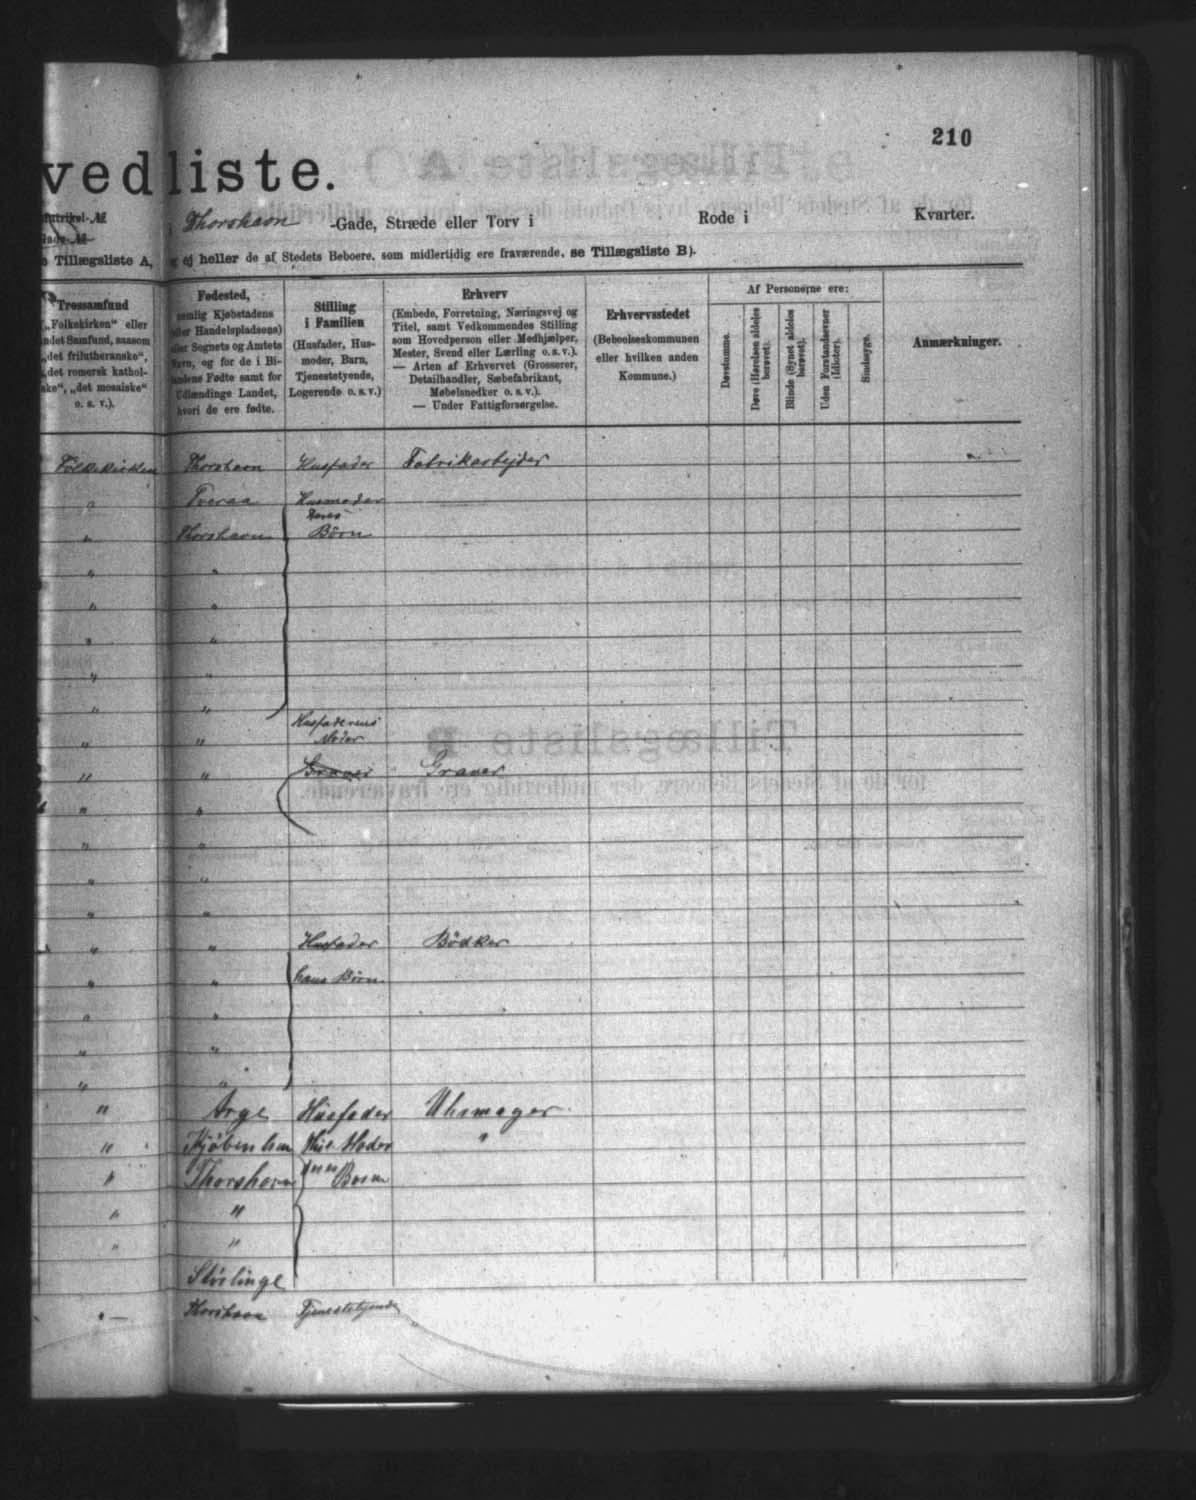 210
vedliste.
Matrikel-№
Gade-№
i Thorshavn -Gade, Stræde eller Torv i Rode i Kvarter.
e Tillægsliste A, og ej heller de af Stedets Beboere, som midlertidig ere fraværende, se Tillægsliste B).
Trossamfund
(„Folkekirken“ eller
andet Samfund, saasom
„det frilutheranske“,
„det romersk kathol-
ske“, „det mosaiske“
o. s. v.).
Fødested,
nemlig Kjøbstadens
(eller Handelspladsens)
eller Sognets og Amtets
Navn, og for de i Bi-
landene Fødte samt for
Udlændinge Landet,
hvori de ere fødte.
Stilling
i Familien
(Husfader, Hus-
moder, Barn,
Tjenestetyende,
Logerende o. s. v.)
Erhverv
(Embede, Forretning, Næringsvej og
Titel, samt Vedkommendes Stilling
som Hovedperson eller Medhjælper,
Mester, Svend eller Lærling o. s. v.).
— Arten af Erhvervet (Grosserer,
Detailhandler, Sæbefabrikant,
Møbelsnedker o. s. v.).
— Under Fattigforsørgelse.
Erhvervsstedet
(Beboelseskommunen
eller hvilken anden
Kommune.)
Af Personerne ere:
Døvstumme.
Døve (Hørelsen aldeles
berøvet).
Blinde (Synet aldeles
berøvet).
Uden Forstandsevner
(Idioter).
Sindssyge.
Anmærkninger.
Folkekirken Thorshavn Husfader Fabrikarbejder
" Tveraa Husmoder
" Thorshavn deres Børn
" "
" "
" "
" "
" "
" " Husfaderens Moder
" " Graver Graver
" "
" "
" "
" "
" " Husfader Bödker
" " hans Börn
" "
" "
" "
" Arge Husfader Uhrmager
" Kjöbenhavn Hus Moder "
" Thorshavn deres Børn
" "
" "
Thorshavn Tjenestetyende